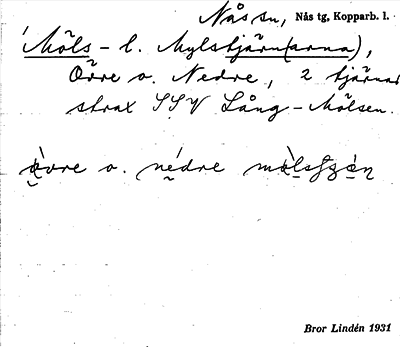 Nås sn, Nås tg, Kopparb. l.
Möls- l. Mylstjärn(arna),
Övre o. Nedre, 2 tjärnar
strax SSV Lång-Mölsen.
òvre o. nédre
Bror Lindén 1931